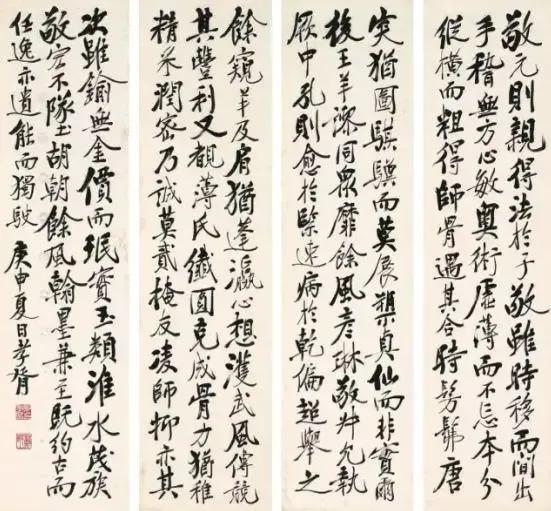 敬元則親得法於子敬雖時移而間出
手稽無方心敏奧術虛薄而不忘本分
縱橫而粗得師骨遇其合時髣髴唐
突猶圖騏驥而莫展塑真仙而非實爾
後王羊謬同眾靡餘風彥琳敬叔允執
厥中孔則愈於緊速病於乾偏超舉之
餘窺羊及肩猶蓬瀛心想濩武風傳兢
其豐利又覩薄氏纖圓克成骨力猶稚
精采潤密乃誠莫貳掩友凌師抑亦其
次雖鍮無金價而珉實玉類淮水茂族
敬宏不隊玉胡朝餘風翰墨兼至既約古而
任逸亦遺能而獨駛 庚申夏日孝胥